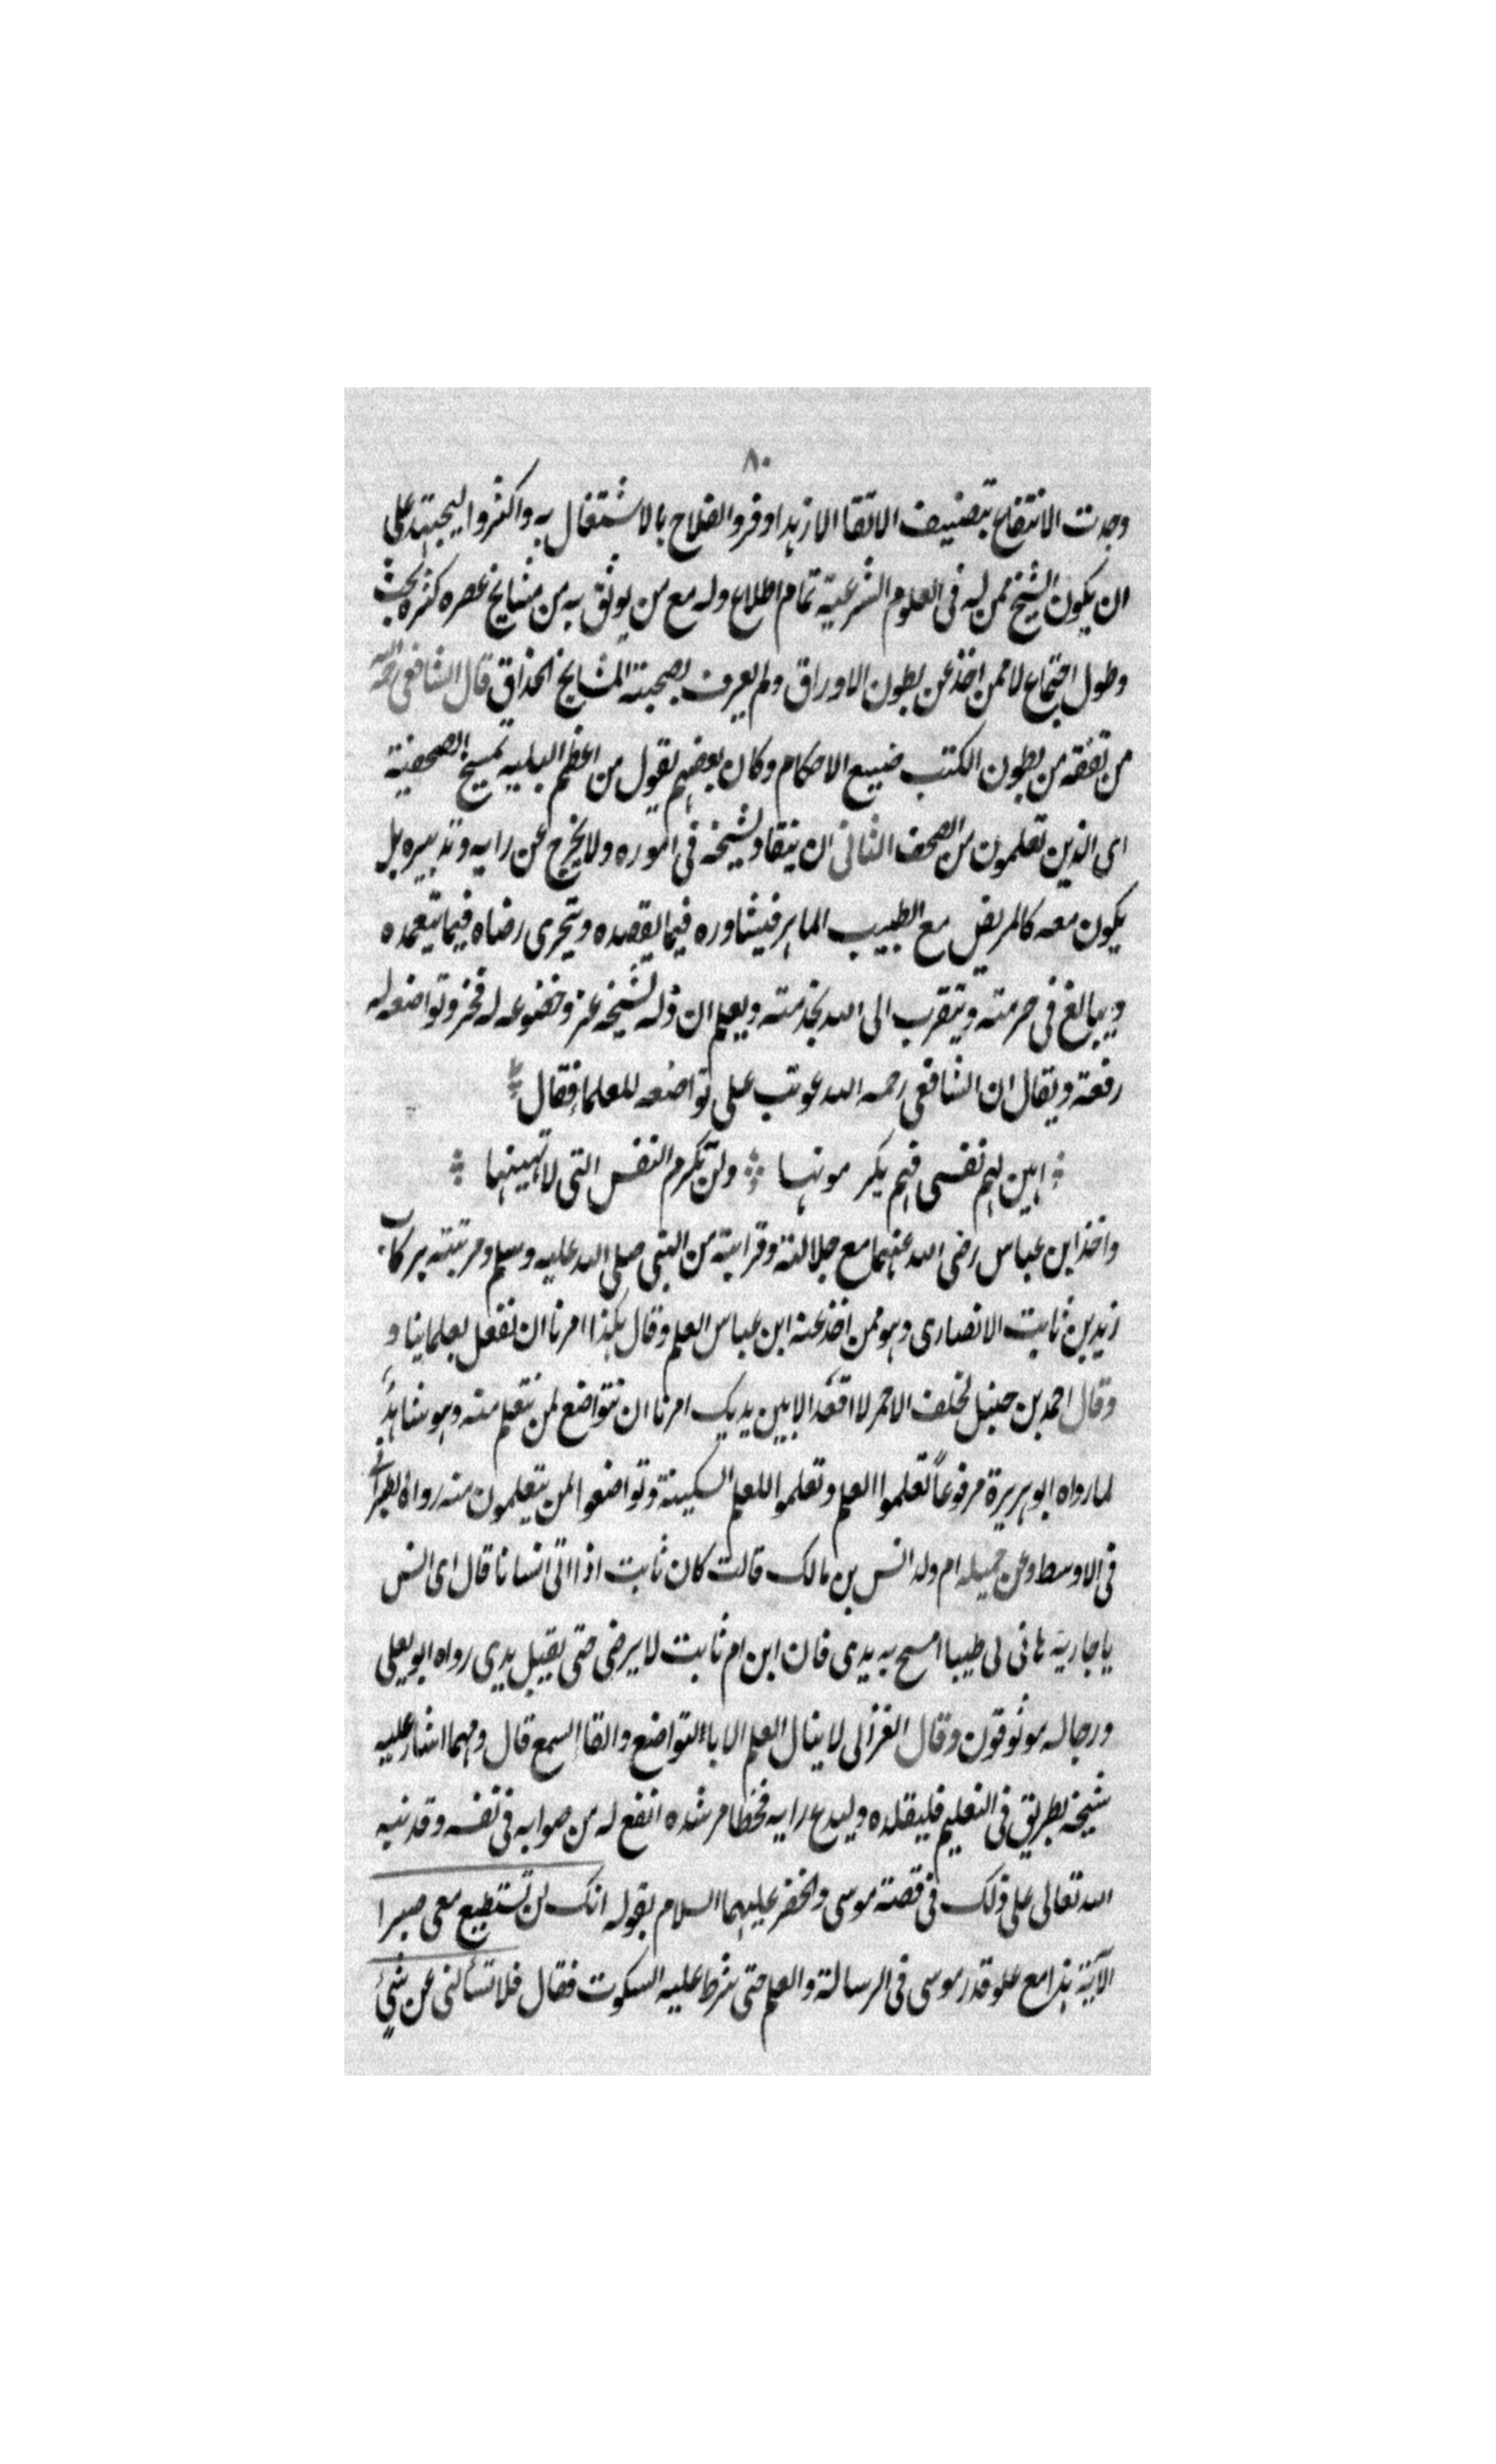 ٨٠
وجدت الانتفاع بتصنيف الاتقا الازهد اوفر والفلاح بالاشتغال به واكثر وليجتهد على
ان يكون الشيخ ممن له فى العلوم الشرعية تمام اطلاع وله مع من يوثق به من مشايخ عصره كثرة بحث
وطول اجتماع لا ممن اخذ عن بطون الاوراق ولم يعرف بصحبة المشايخ الحذاق قال الشافعى رحمه الله
من تفقه من بطون الكتب ضيع الاحكام وكان بعضهم يقول من اعظم البليه تمشيخ الصحفية
اى الذين تعلمون من الصحف الثانى ان ينقاد لشيخه فى اموره ولا يخرج عن رايه وتدبيره بل
يكون معه كالمريض مع الطبيب الماهر فيشاوره فيما يقصده ويتحرى رضاه فيما يتعمده
ويبالغ فى حرمته ويتقرب الى الله بخدمته ويعلم ان ذله لشيخه عز وخضوعه له فخر وتواضعه له
رفعة ويقال ان الشافعى رحمه الله عوتب على تواضعه للعلما فقال
اهين لهم نفسى فهم يكرمونها ولن تكرم النفس التى لا تهينها
واخذ ابن عباس رضى الله عنهما مع جلالته وقرابته من النبى صلى الله عليه وسلم ومرتبته بركاب
زيد بن ثابت الانصارى وهو ممن اخذ عنه ابن عباس العلم وقال هكذا امرنا ان نفعل بعلماينا و
وقال احمد بن حنبل لخلف الاحمر لا اقعد الا بين يديك امرنا ان نتواضع لمن نتعلم منه وهو شاهد
لما رواه ابو هريرة مرفوعاً تعلموا العلم وتعلموا للعلم السكينة وتواضعوا لمن يتعلمون منه رواه الطبرانى
فى الاوسط وعن جميله ام ولد انس بن مالك قالت كان ثابت اذا اتى انسانا قال اى انس
يا جارية هاتى لى طيبا امسح به يدى فان ابن ام ثابت لا يرضى حتى يقبل يدى رواه ابو يعلى
ورجاله موثوقون وقال الغزالى لا ينال العلم الا باءلتواضع والقاا لسمع قال ومهما اشار عليه
شيخه بطريق فى التعليم فليقلده وليدع رايه فخطا مرشده انفع له من صوابه فى نفسه وقد نبه
الله تعالى على ذلك فى قصة موسى والخضر عليهما السلام بقوله انك لن تستطيع معى صبرا
الآية هذا مع علو قدر موسى فى الرسالة والعلم حتى شرط عليه السكوت فقال فلا تسألنى عن شئ